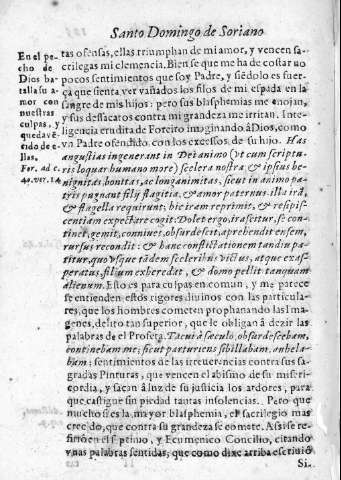 Santo Domingo de Soriano
En el pe-
cho de
Dios ba-
talla su a-
mor con
nuestras
culpas, y
queda vē-
cido de e-
llas.
For. ad c.
42. ver. 14
tas ofensas, ellas triumphan de mi amor, y vencen sa-
crilegas mi clemencia. Bien se que me ha de costar no
pocos sentimientos que soy Padre, y siédolo es fuer-
ça que sienta ver vañados los filos de mi espada en la
sangre de mis hijos: pero sus blasphemias me enojan,
y sus dessacatos contra mi grandeza me irritan. Inte-
ligencia erudita de Foreiro imaginando â Dios, como
va Padre ofendido con los excessos de su hijo. Has
angustias ingenerant in Dei animo (vt cum scriptu-
ris loquar humano more) scelera nostra & ipsius be-
nignitas, bonitas, ac longanimitas, sicut in animo pa-
tris pugnant filij flagitia, & amor paternus. illa irã,
& flagella requirunt; hic iram reprimit, & resipis-
centiam expectare cogit. Dolet ergo, irascitur, se con-
tinet, gemit, connivet, obsurdescit, aprehendit ensem,
rursus recondit: & hanc conflictationem tandiu pa-
titur, quovsque tãdem sceleribus victus, atque exas-
peratus, filium exheredat, & domo pellit tanquam
alienum. Esto es para culpas en comun, y me parece
se entienden estos rigores divinos con las particula-
res, que los hombres cometen prophanando las I-
magenes, delito tan superior, que le obligan â dezir las
palabras de el Profeta. Tacui â seculo, obsurdescebam,
continebam me; sicut parturiens sibillabam, anhela-
bam: sentimientos de las irreverencias contra sus sa-
gradas Pinturas, que vencen el abismo de su miseri-
cordia, y sacan â luz de su justicia los ardores, para
que castigue sin piedad tantas insolencias. Pero que
mucho si es la mayor blasphemia, el sacrilegio mas
crecido, que contra su grandeza se comete. Assi se re-
firiò en el septimo, y Ecumenico Concilio, citando
vnas palabras sentidas, que como dixe arriba escriviò
Si-